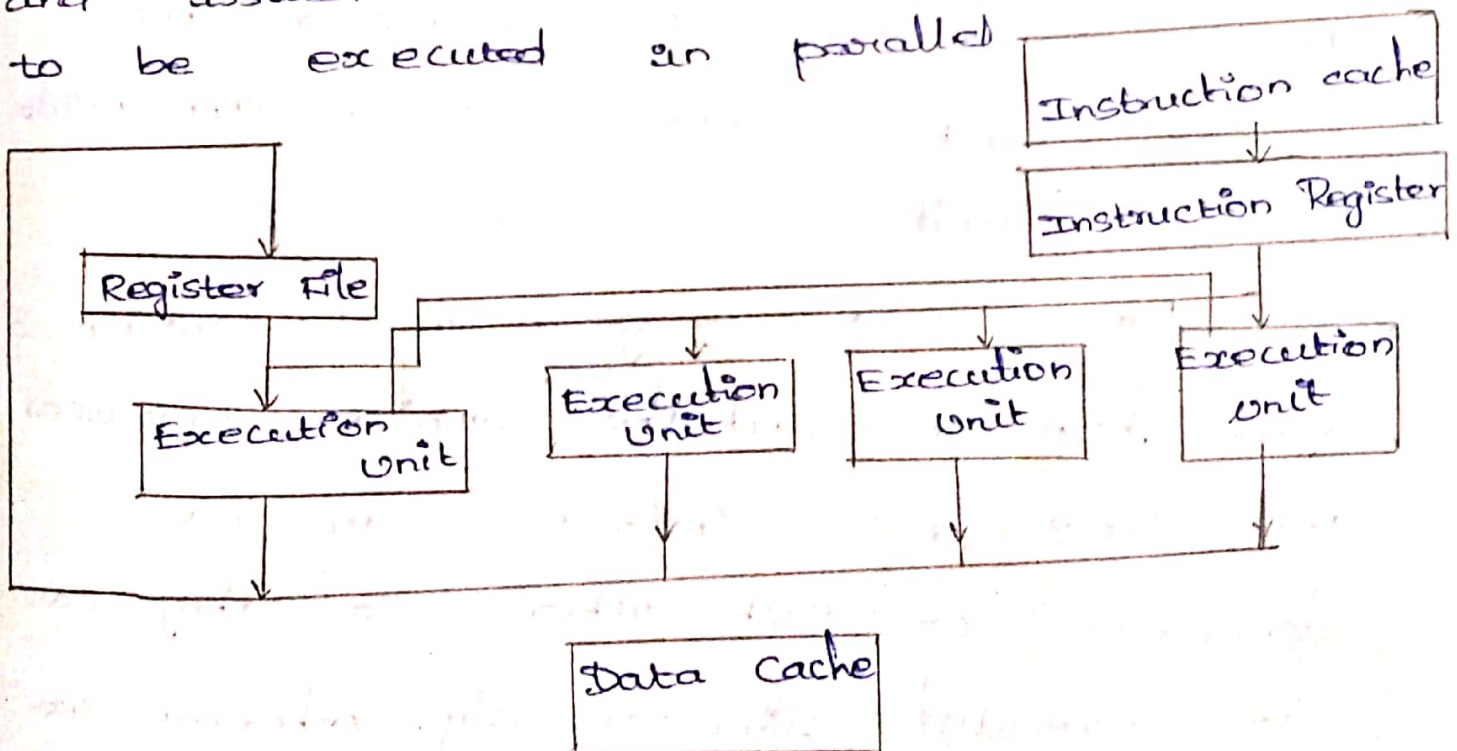 to be executed in parallel
Instruction cache
Instruction Register
Register File
Execution
Unit
Execution
Unit
Execution
Unit
Execution
Unit
Data Cache